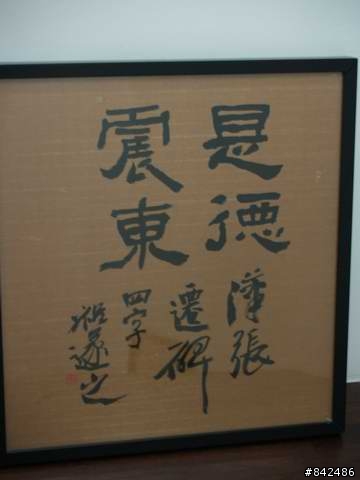 是德
震東
漢張
遷碑
四字
#842486